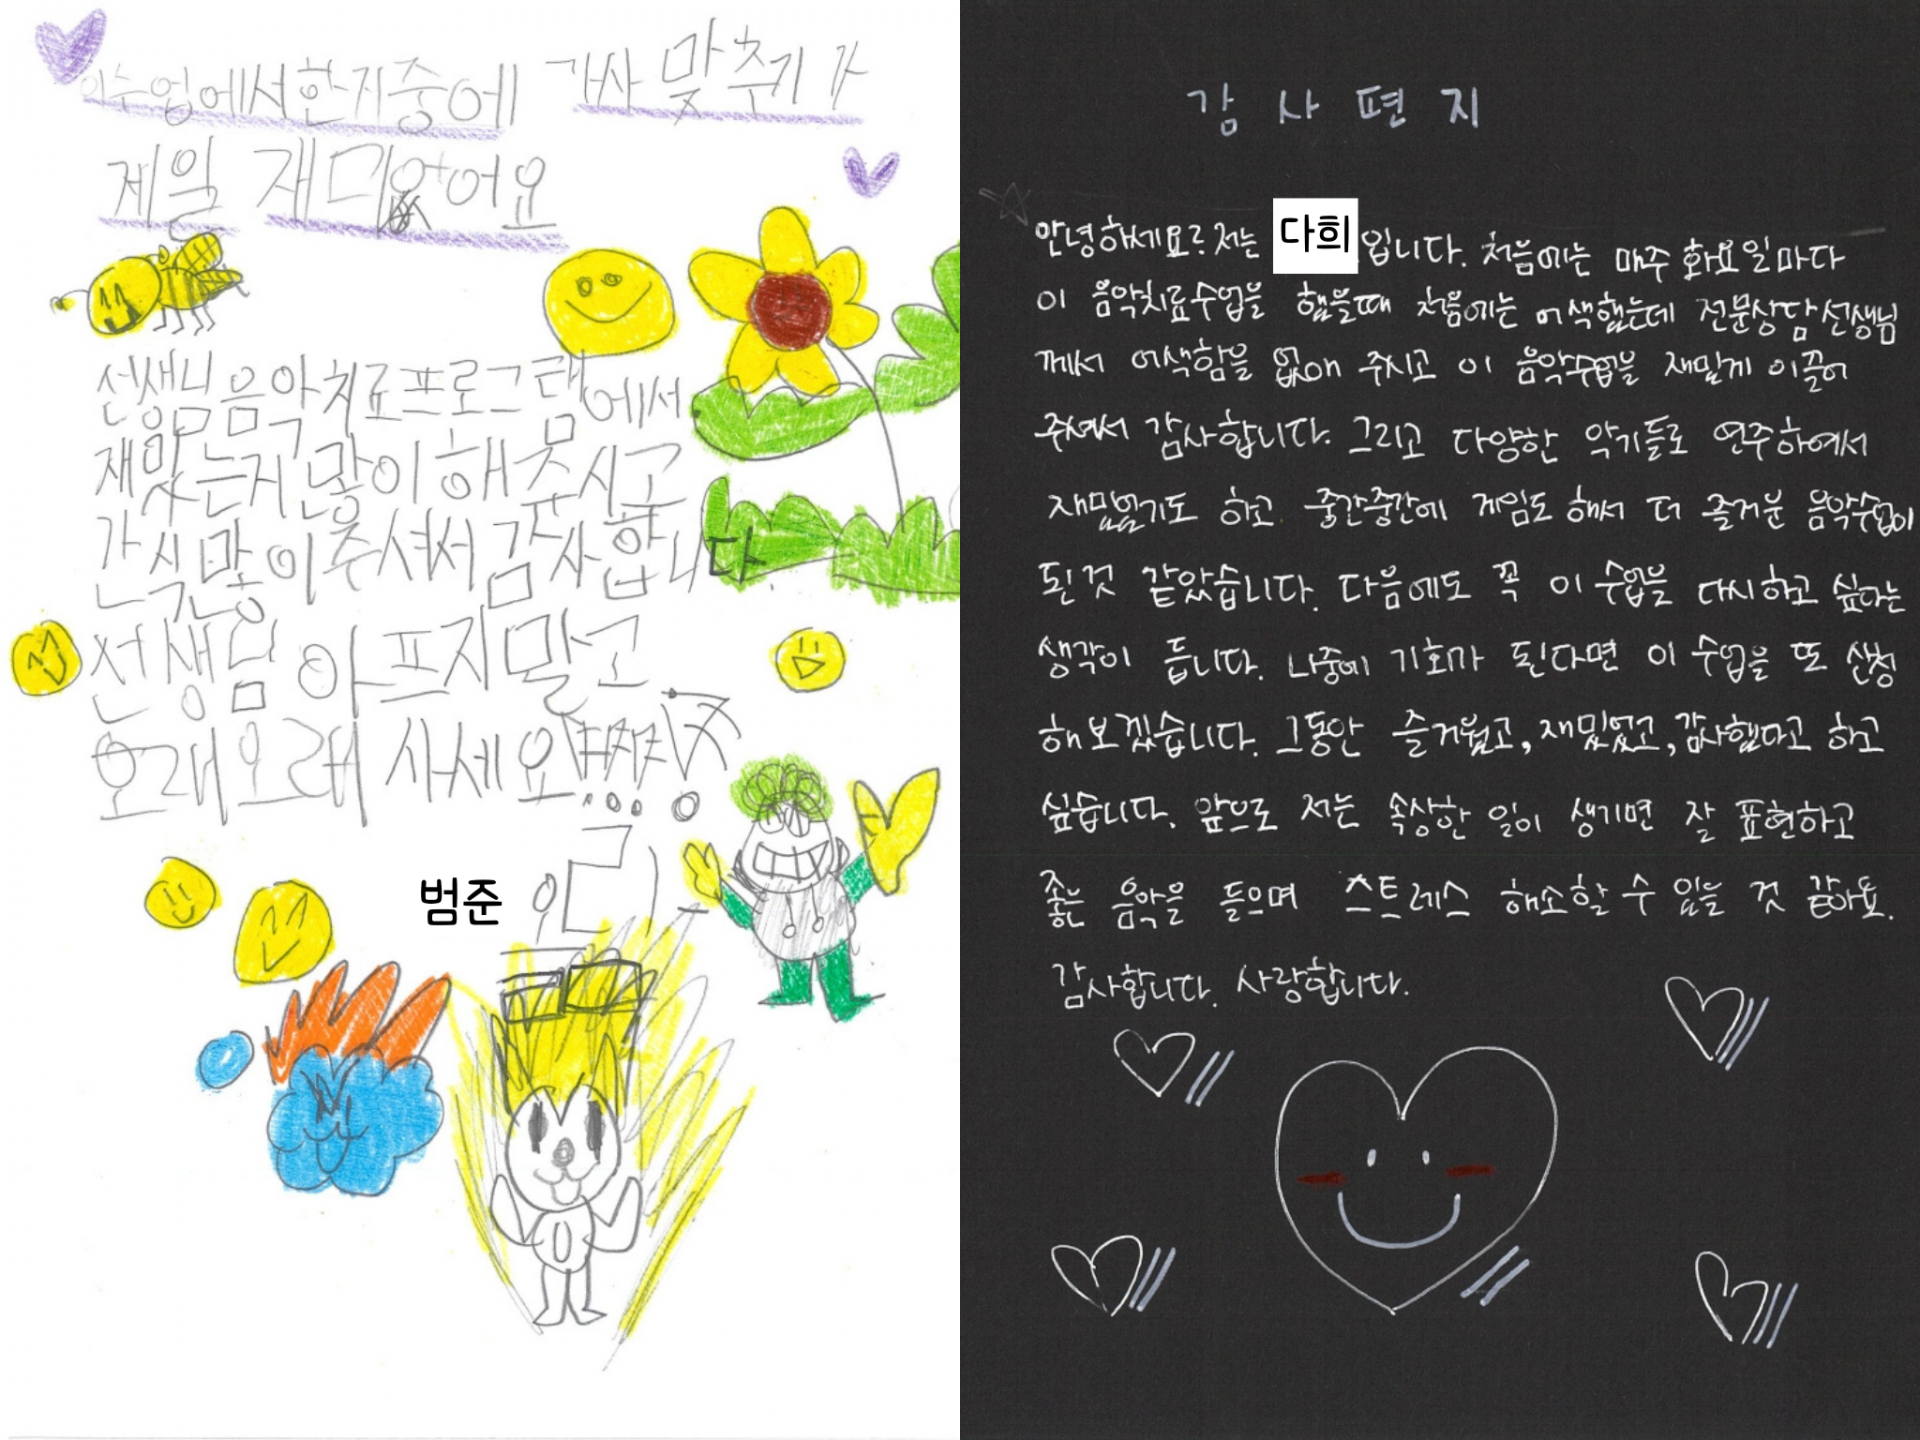 이수업에서한지중에 가사 맞추기가
제일 재미있어요
선생님음악치료프로그램에서
재밌는거많이해주시고
간식많이주셔서감사합니다.
선생님아프지말고
오래오래 사세요
범준 올림
감사편지
안녕하세요? 저는 다희입니다. 처음에는 매주 화요일마다
이 음악치료수업을 했을때 처음에는 어색했는데 전문상담선생님
께서 어색함을 없애 주시고 이 음악수업을 재밌게 이끌어
주셔서 감사합니다. 그리고 다양한 악기들로 연주하여서
재밌었기도 하고 중간중간에 게임도 해서 더 즐거운 음악수업이
된것 같았습니다. 다음에도 꼭 이 수업을 다시하고 싶다는
생각이 듭니다. 나중에 기회가 된다면 이 수업을 또 신청
해보겠습니다. 그동안 즐거웠고, 재밌었고, 감사했다고 하고
싶습니다. 앞으로 저는 속상한 일이 생기면 잘 표현하고
좋은 음악을 들으며 스트레스 해소할 수 있을 것 같아요.
감사합니다. 사랑합니다.